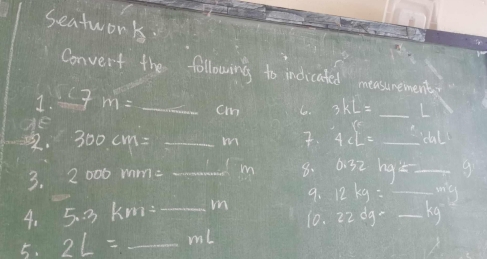 Seatwork.
Convert the following to indicated measurement.
1. 7 m = ____ cm
2. 300 cm = ____ m
3. 2000 mm = ____ m
4. 5.3 km = ____ m
5. 2L = ____ mL
6. 3kL = ____ L
7. 4cL = ____ daL
8. 0.32 hg = ____ g
9. 12 kg = ____ mg
10. 22 dg = ____ kg